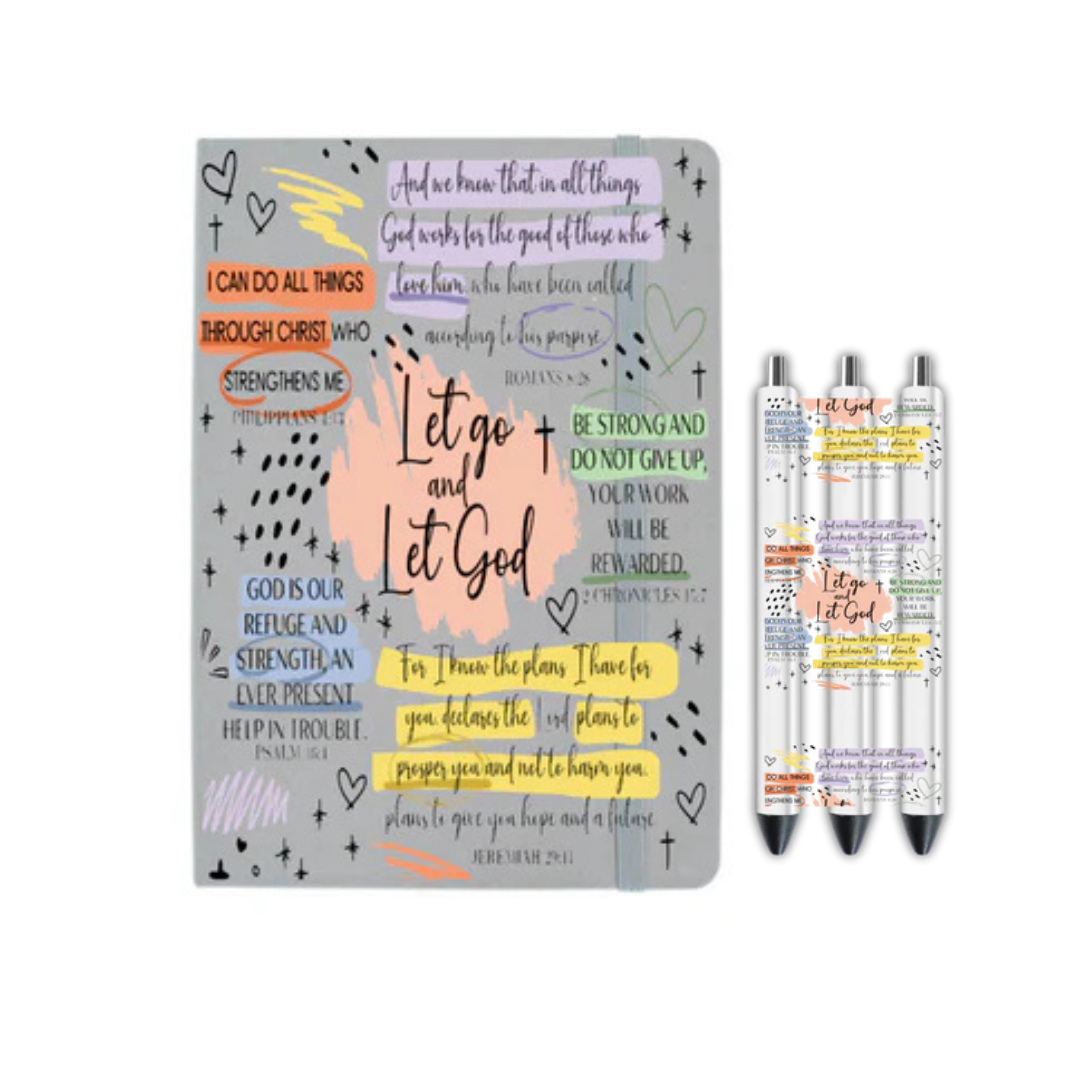 And we know that in all things
God works for the good of those who
love him, who have been called
according to his purpose.
ROMANS 8:28
I CAN DO ALL THINGS
THROUGH CHRIST, WHO
STRENGTHENS ME
PHILIPPIANS 4:13
Let go
and
Let God
BE STRONG AND
DO NOT GIVE UP,
YOUR WORK
WILL BE
REWARDED.
2 CHRONICLES 15:7
GOD IS OUR
REFUGE AND
STRENGTH, AN
EVER PRESENT
HELP IN TROUBLE.
PSALM 46:1
For I know the plans I have for
you, declares the Lord plans to
prosper you and not to harm you,
plans to give you hope and a future
JEREMIAH 29:11
Let God
WILL BE
REWARDED.
GOD IS OUR
REFUGE AND
STRENGTH, AN
EVER PRESENT
P IN TROUBLE
For I know the plans I have for
you, declares the Lord plans to
prosper you and not to harm you,
plans to give you hope and a future
And we know that in all things
God works for the good of those who
love him, who have been called
according to his purpose.
DO ALL THINGS
GH CHRIST, WHO
ENGTHENS ME
Let go
and
Let God
BE STRONG AND
DO NOT GIVE UP,
YOUR WORK
WILL BE
REWARDED.
GOD IS OUR
REFUGE AND
STRENGTH, AN
EVER PRESENT
P IN TROUBLE
For I know the plans I have for
you, declares the Lord plans to
prosper you and not to harm you,
plans to give you hope and a future
And we know that in all things
God works for the good of those who
love him, who have been called
according to his purpose.
DO ALL THINGS
GH CHRIST, WHO
ENGTHENS ME